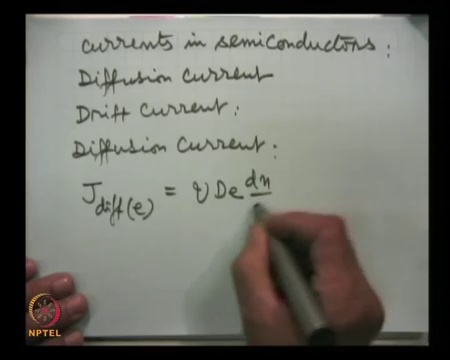 currents in semiconductors:
Diffusion Current
Drift Current:
Diffusion Current:
J diff(e) = q De dn
NPTEL